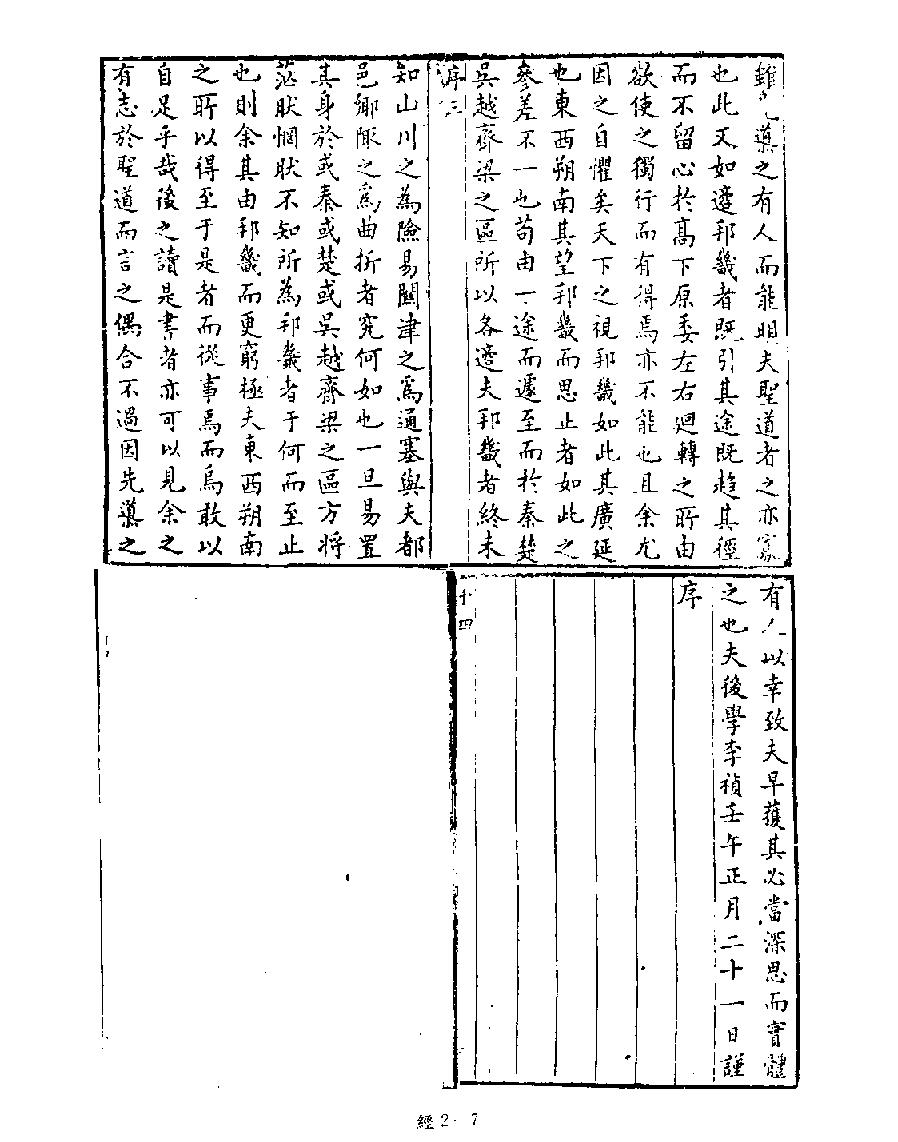 雖先導之有人而能明夫聖道者之亦寡
也此又如適邦畿者既引其途既趋其徑
而不留心於高下原委左右迴轉之所由
欲使之獨行而有得焉亦不能也且余尤
因之自懼矣天下之視邦畿如此其廣延
也東西朔南其望邦畿而思止者如此之
參差不一也苟由一途而遽至而於秦楚
吳越齊梁之區所以各適夫邦畿者終未
序三
知山川之為險易關津之為通塞與夫都
邑鄉陬之爲曲折者究何如也一旦易置
其身於或秦或楚或吳越齊梁之區方将
茫然惘然不知所為邦畿者于何而至止
也則余其由邦畿而更窮極夫東西朔南
之所以得至于是者而從事焉而烏敢以
自足乎哉後之讀是書者亦可以見余之
有志於聖道而言之偶合不過因先導之
有人以幸致夫早獲其必當深思而實體
之也夫後學李禎壬午正月二十一日謹
序
十四
經2-7